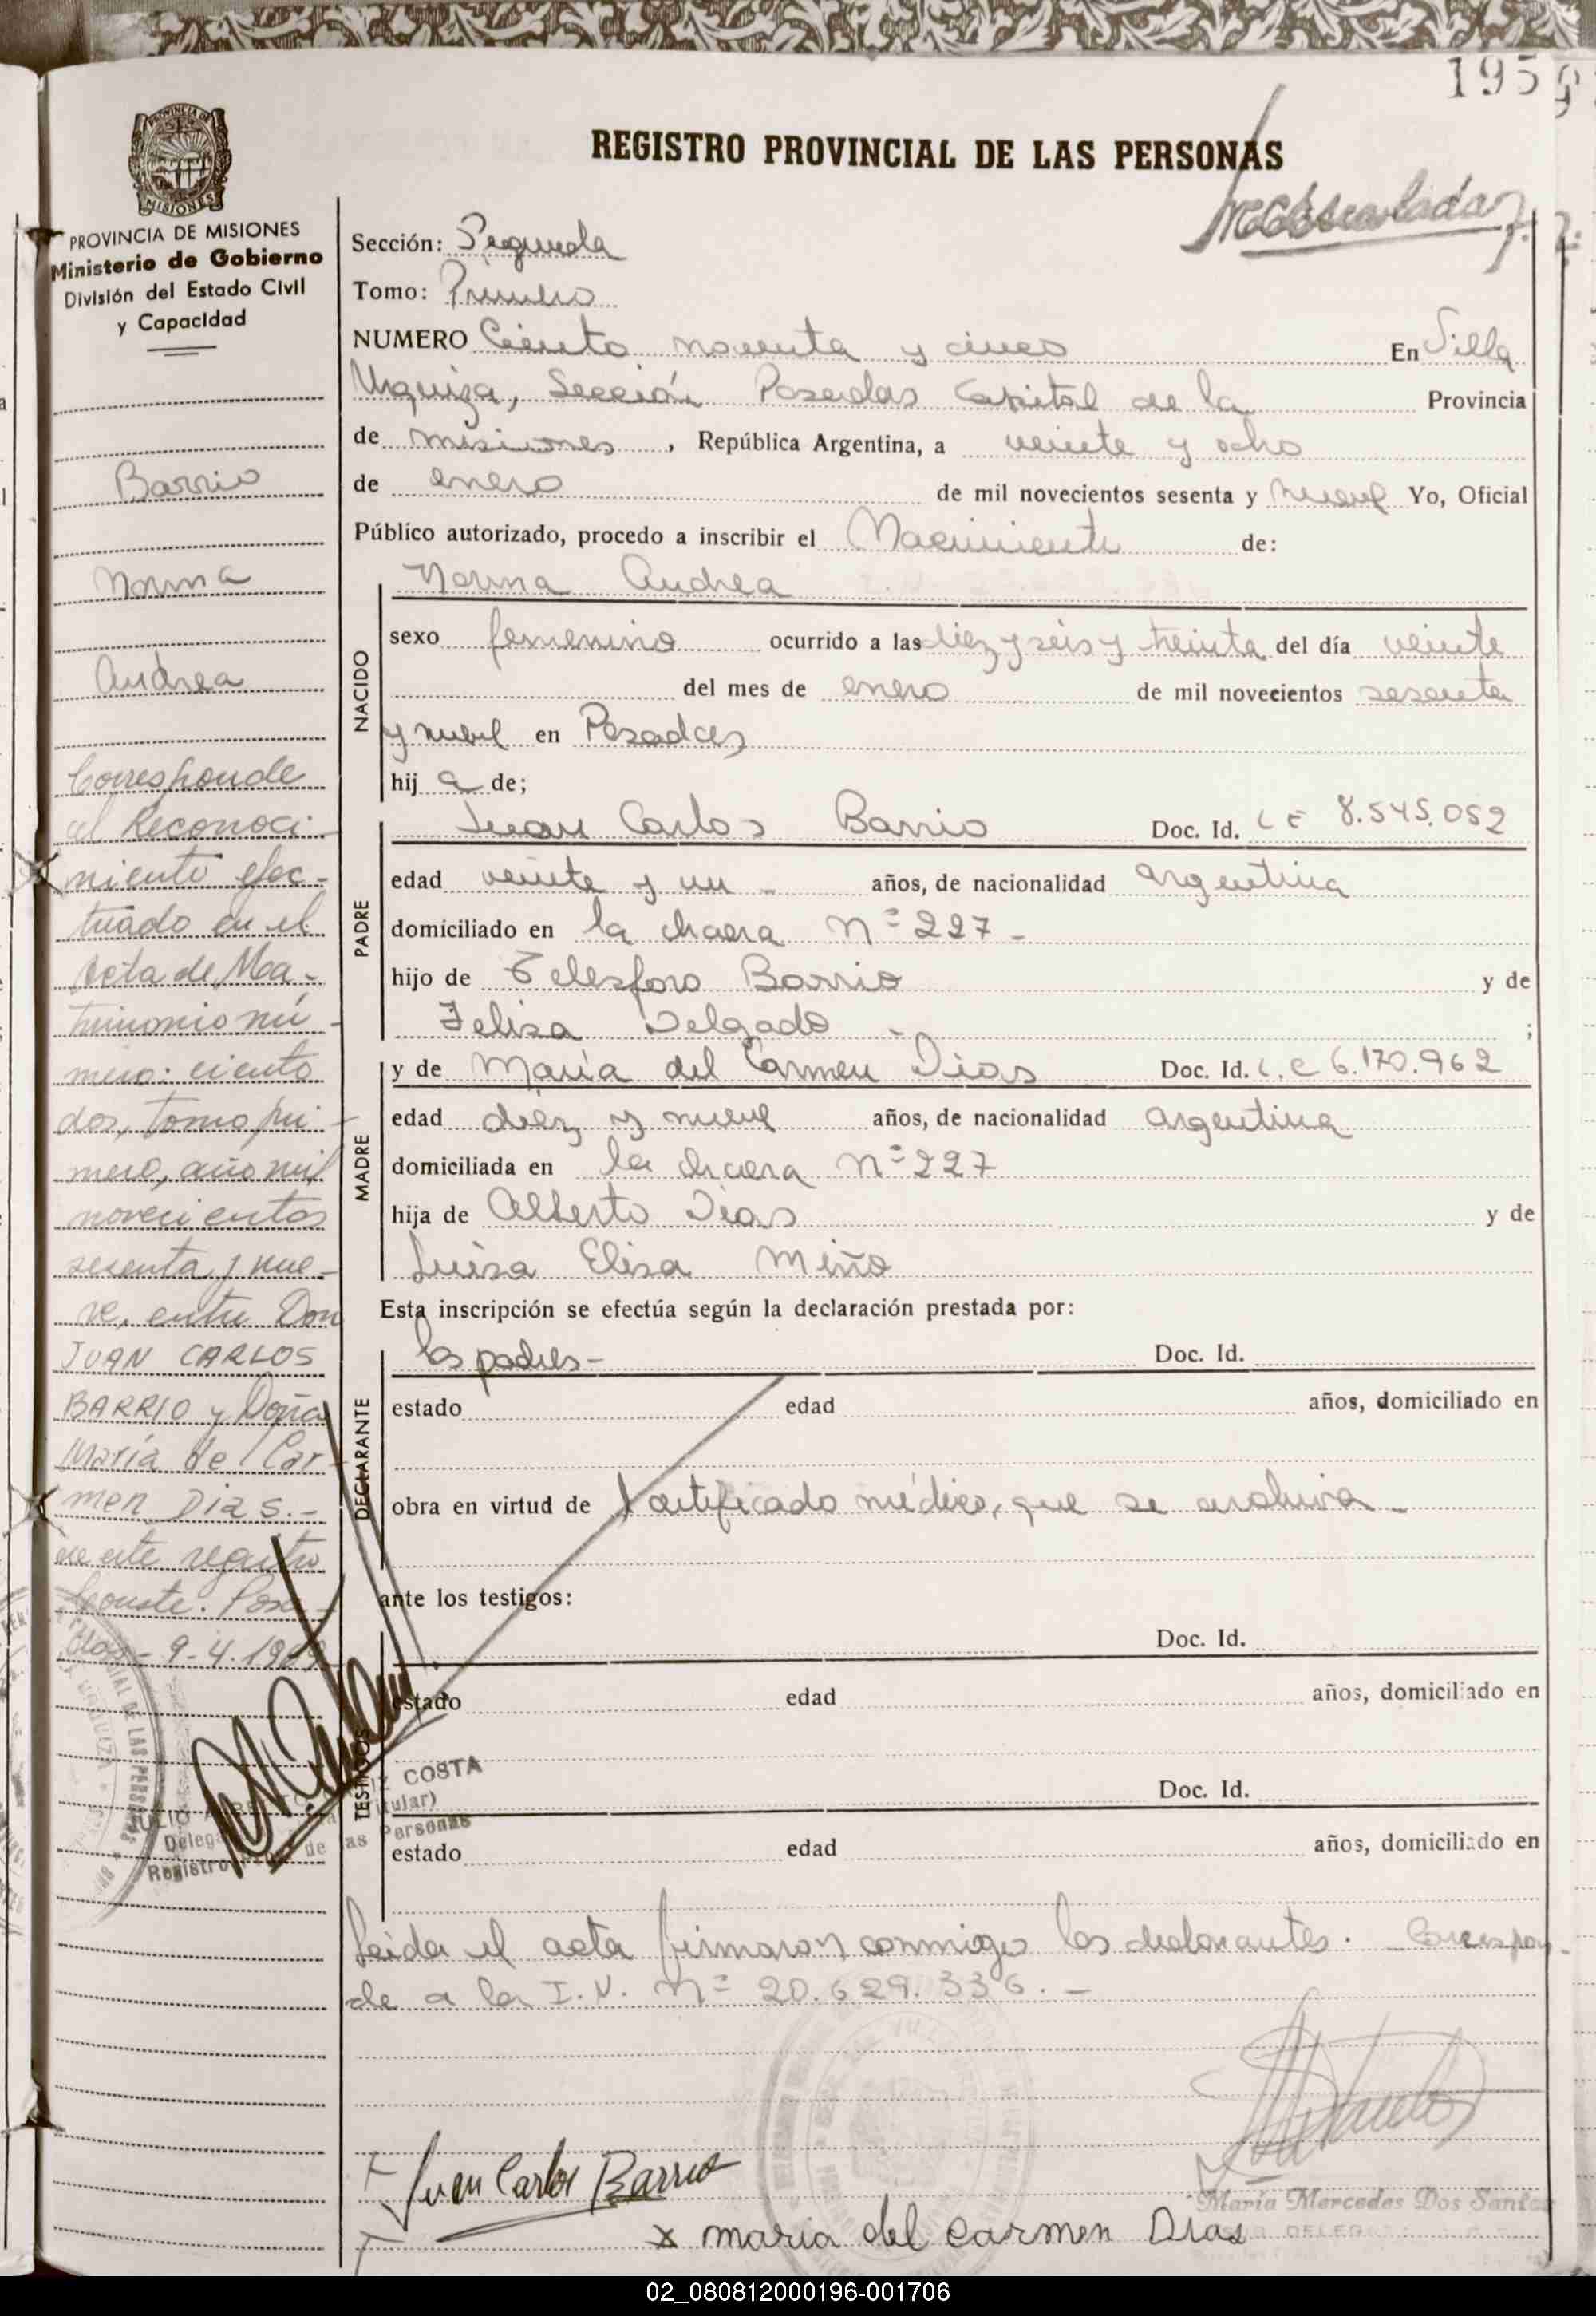 195
REGISTRO PROVINCIAL DE LAS PERSONAS
MISIONES
PROVINCIA DE MISIONES
Ministerio de Gobierno
División del Estado Civil
y Capacidad
Barrio
Norma
Andrea
Corresponde
al Reconoci-
miento efec-
tuado en el
Acta de Ma-
trimonio nú-
mero: ciento
dos, tomo pri-
mero, año mil
novecientos
sesenta y nue-
ve, entre Don
JUAN CARLOS
BARRIO y Doña
María del Car-
men Dias.-
de este registro
Conste. Posa-
das - 9-4-19
Sección: Segunda
Tomo: Primero
NUMERO Ciento noventa y cinco En Villa
Urquiza, Sección Posadas Capital de la Provincia
de misiones, República Argentina, a veinte y ocho
de enero de mil novecientos sesenta y nueve Yo, Oficial
Público autorizado, procedo a inscribir el Nacimiento de:
Norma Andrea
NACIDO
sexo femenino ocurrido a las diez y seis y treinta del día veinte
del mes de enero de mil novecientos sesenta
y nueve en Posadas
hija de;
PADRE
Juan Carlos Barrio Doc. Id. L E 8.545.052
edad veinte y un - años, de nacionalidad argentina
domiciliado en la chacra Nº 227 -
hijo de Telesforo Barrio y de
Felisa Delgado - ;
MADRE
y de María del Carmen Dias Doc. Id. L.C 6.170.962
edad diez y nueve años, de nacionalidad argentina
domiciliada en la chacra Nº 227
hija de Alberto Dias y de
Luisa Elisa Miño
Esta inscripción se efectúa según la declaración prestada por:
DECLARANTE
los padres - Doc. Id.
estado edad años, domiciliado en
obra en virtud de certificado médico, que se archiva -
ante los testigos:
TESTIGOS
Doc. Id.
estado edad años, domiciliado en
Doc. Id.
estado edad años, domiciliado en
COSTA
Registro de las Personas
Leida el acta firmaron conmigo los declarantes. Correspon-
de a la I.N. Nº 20.629.336.-
Juan Carlos Barrio
María Mercedes Dos Santos
x maria del carmen Dias
02_080812000196-001706